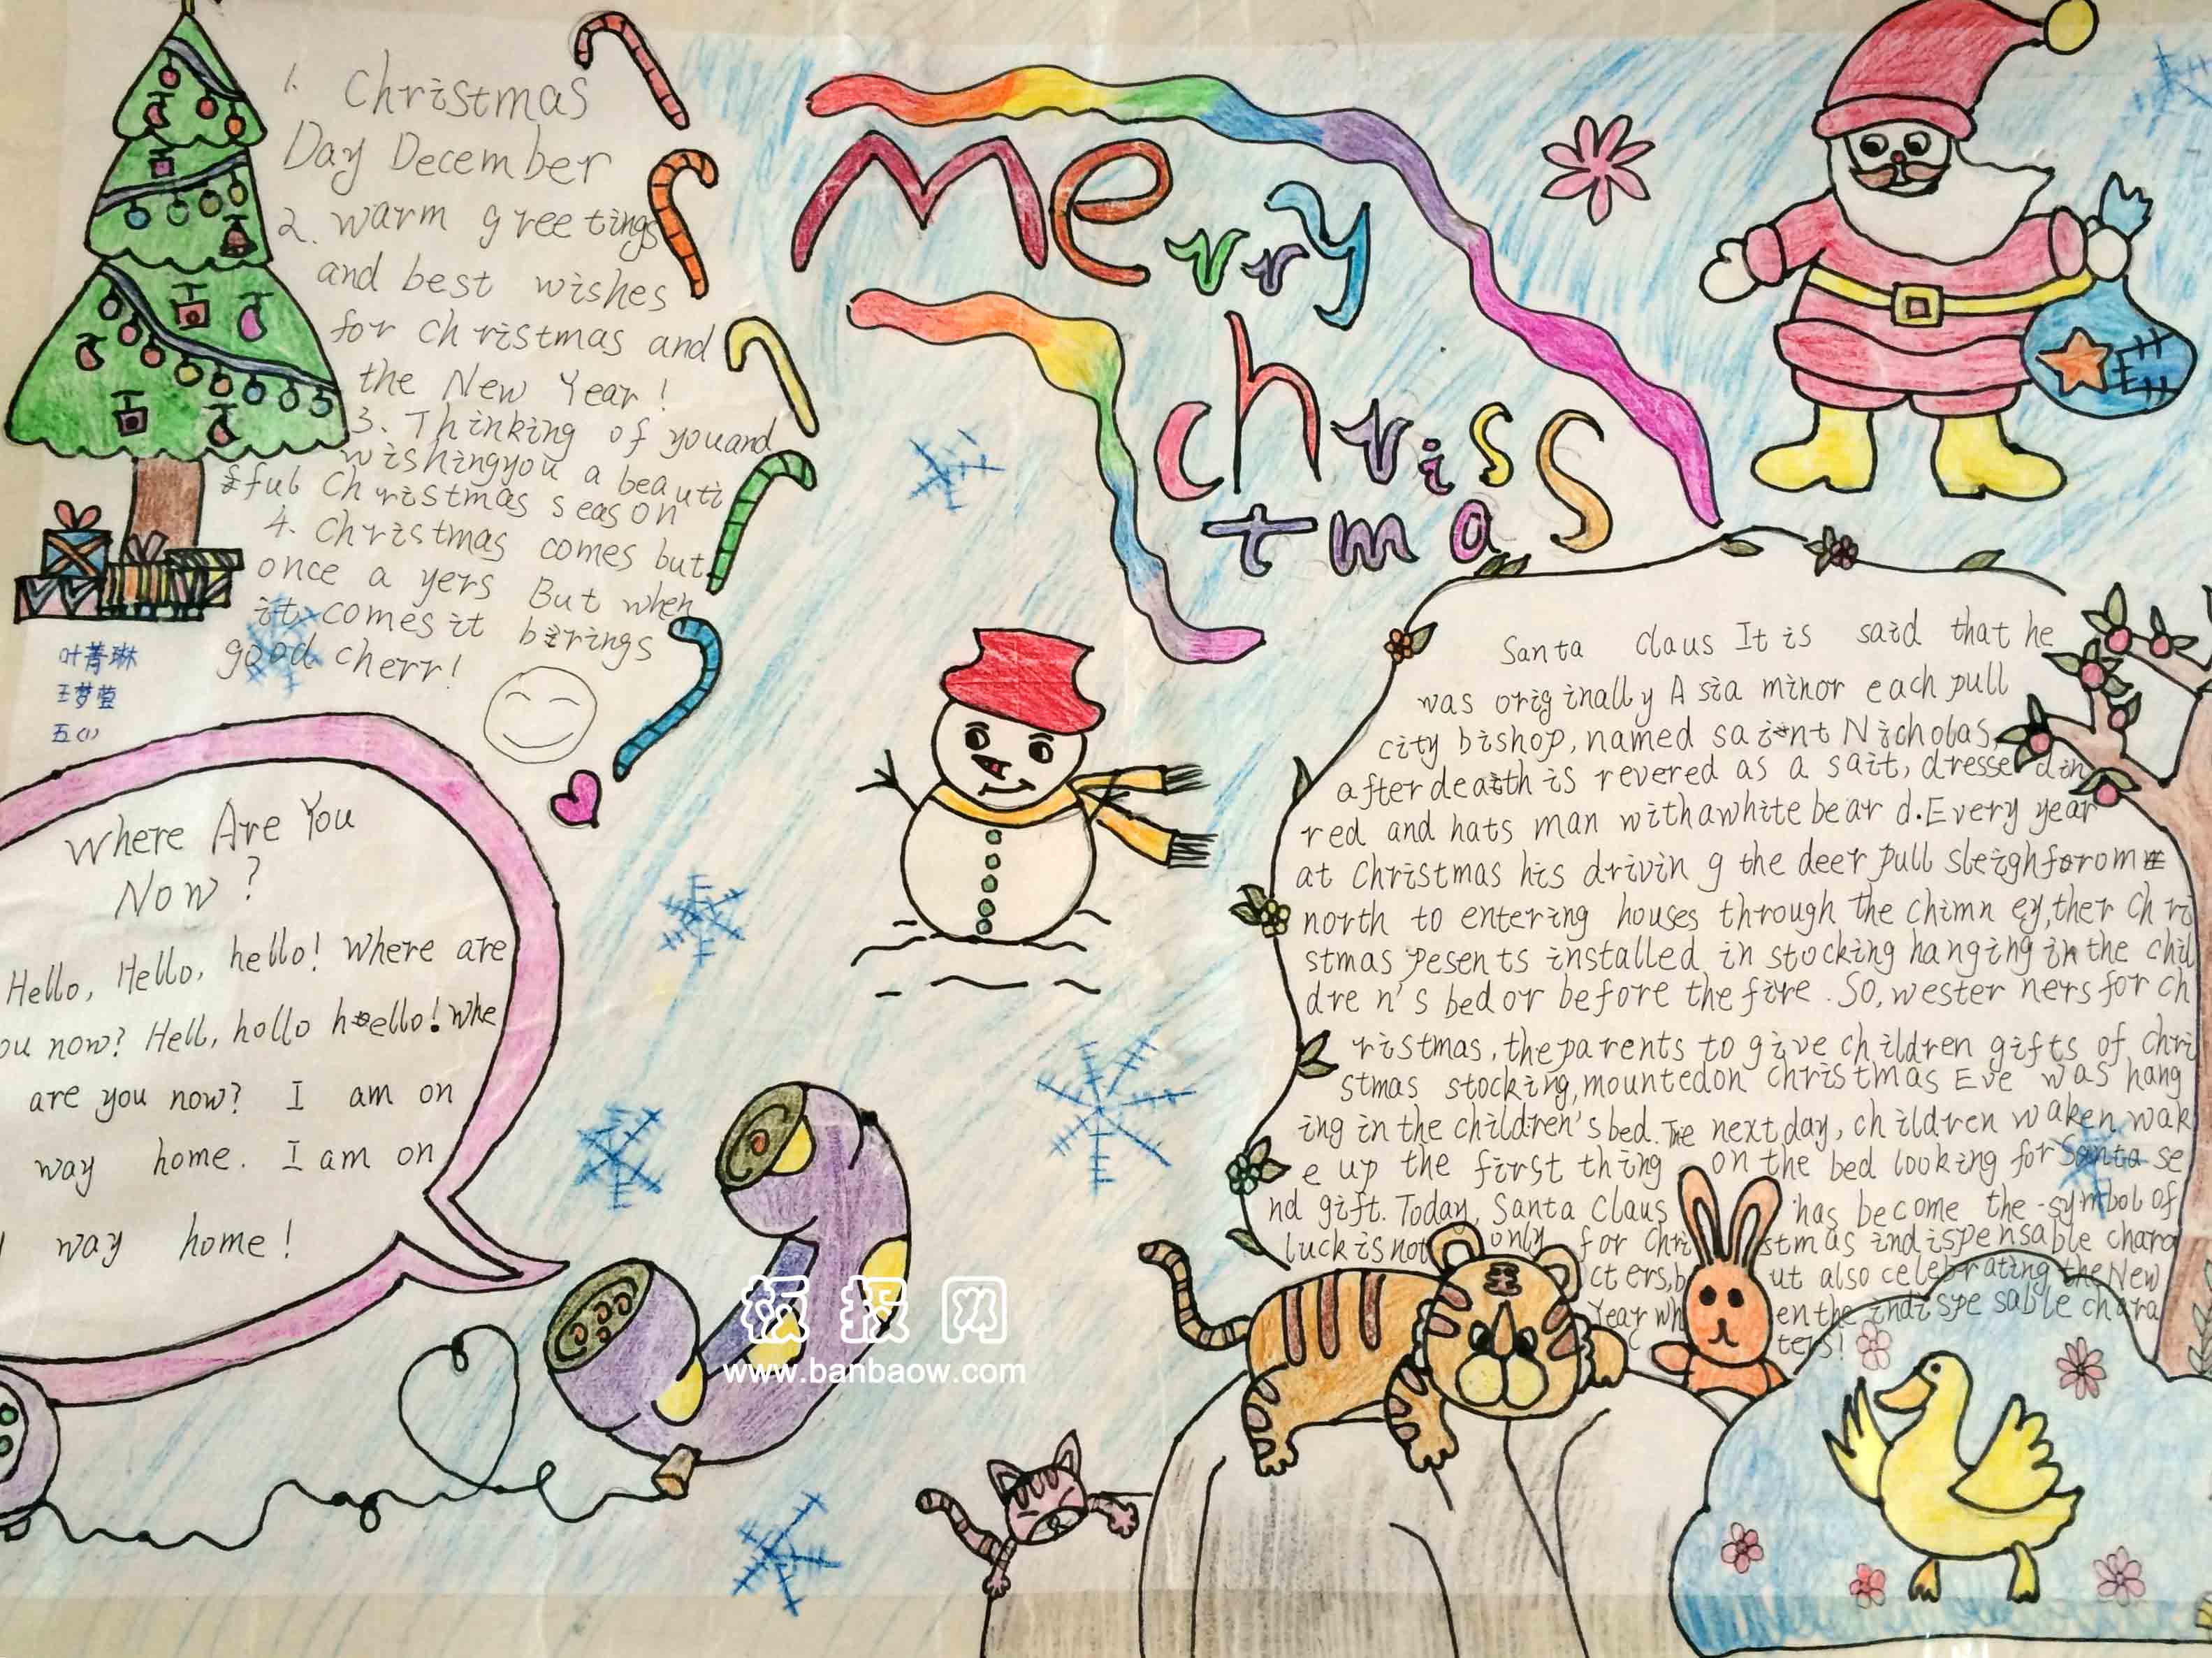 1. Christmas
Day December
2. Warm greetings
and best wishes
for Christmas and
the New Year!
3. Thinking of youand
wishingyou a beauti
ful Christmas season
4. Christmas comes but
once a yers But when
it comes it brings
good cherr!
叶菁琳
王梦莹
五(1)
Merry
Chriss
tma
Where Are You
Now?
Hello, Hello, hello! Where are
ou now? Hell, hollo hello! Whe
are you now? I am on
way home. I am on
way home!
Santa Claus It is said that he
was originally Asia minor each pull
city bishop, named saint Nicholas,
after death is revered as a sait, dressed in
red and hats man withawhite beard. Every year
at Christmas his driving the deer pull sleigh from
north to entering houses through the chimney, ther Chri
stmas pesents installed in stocking hanging in the chil
dren's bed or before the fire. So, westerners for Ch
ristmas, the parents to give children gifts of Chri
stmas stocking, mountedon Christmas Eve was hang
ing in the children's bed. The next day, children waken, wak
e up the first thing on the bed looking for Santa se
nd gift. Today, Santa Claus has become the symbol of
luck is not only for Christmas indispensable chara
cters, but also celebrating the New
Year when the indispesable chara
ters!
板报网
www.banbaow.com